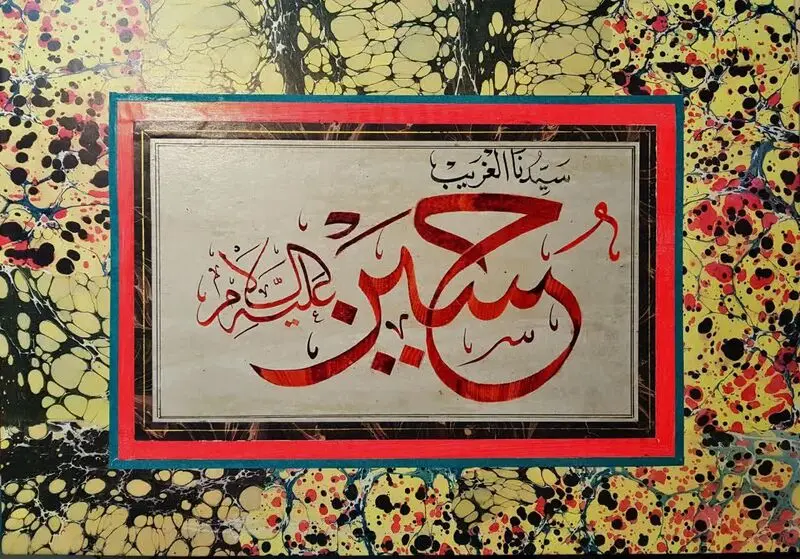 سَيِّدُنَا الْغَرِيبْ
حُسَين
عليه السلام